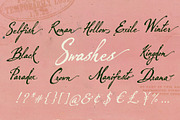 Selfish Roman Hollow Exile Winter
Black Swashes Kingdom
Paradox Crown Manifesto Drama